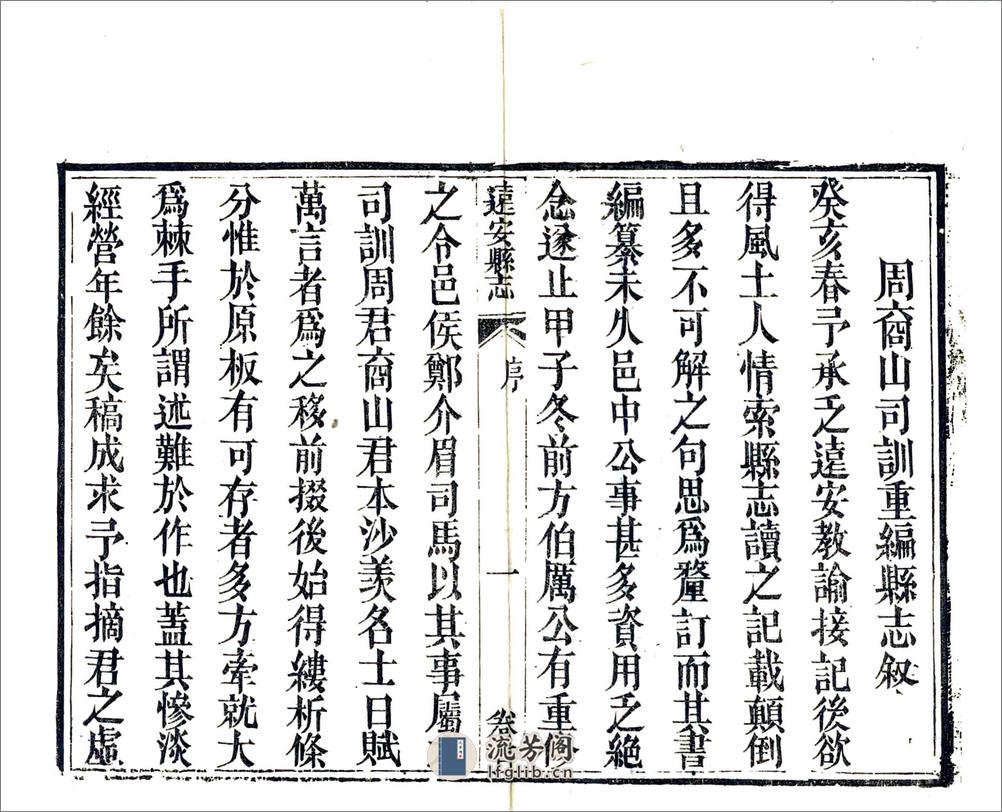 周啇山司訓重編縣志叙
癸亥春予承乏遠安教諭接記後欲
得風土人情索縣志讀之記載顛倒
且多不可解之句思爲釐訂而其書
編纂未久邑中公事甚多資用乏絶
念遂止甲子冬前方伯厲公有重脩
遠安縣志
序
一
卷
之令邑侯鄭介眉司馬以其事屬
司訓周君啇山君本沙羡名士日賦
萬言者爲之移前掇後始得縷析條
分惟於原板有可存者多方牽就大
爲棘手所謂述難於作也蓋其慘淡
經營年餘矣稿成求予指摘君之虛
流芳阁
lfglib.cn